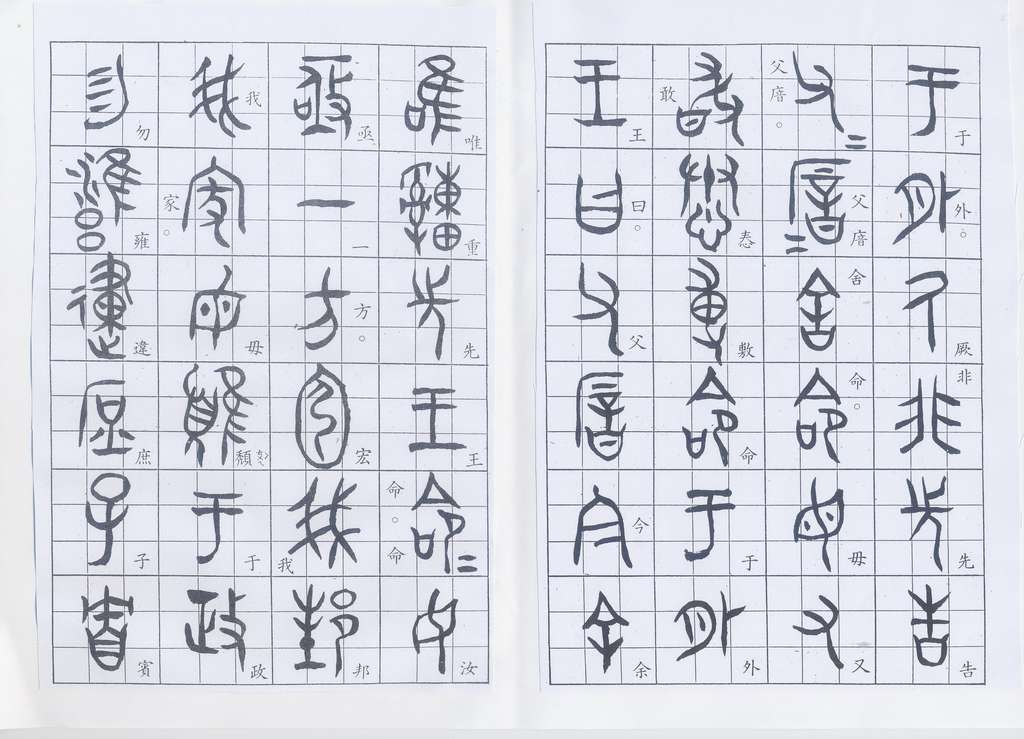 于外。厥非先告
父。父舍命。毋又
敢惷敷命于外
王曰。父今余
唯重先王命。命汝
亟一方。宏我邦
我家。毋于政
勿雍違庶子賓